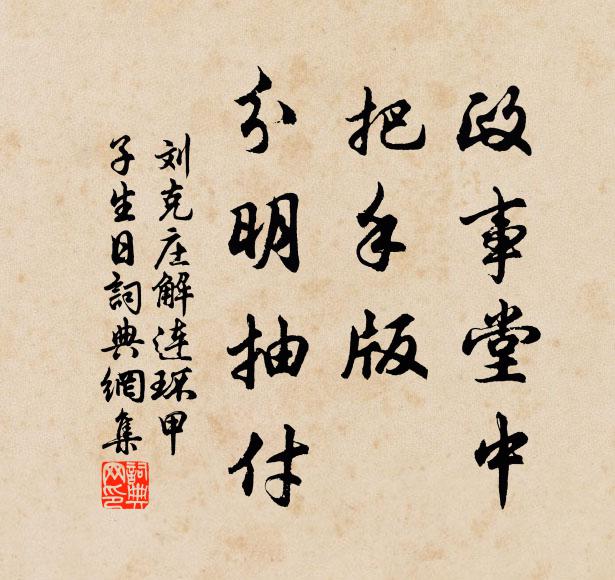 政事堂中
把手版
分明抽付
刘克庄解连环甲
子生日詞典網集
詞典网印